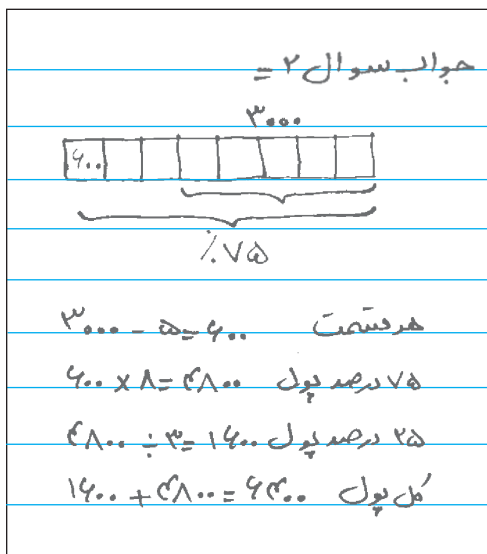 جواب سوال ۲ =
۳۰۰۰
۶۰۰
٪۷۵
هر قسمت ۳۰۰۰ - ۵ = ۶۰۰
۷۵ درصد پول ۶۰۰ × ۸ = ۴۸۰۰
۲۵ درصد پول ۴۸۰۰ ÷ ۳ = ۱۶۰۰
کل پول ۱۶۰۰ + ۴۸۰۰ = ۶۴۰۰